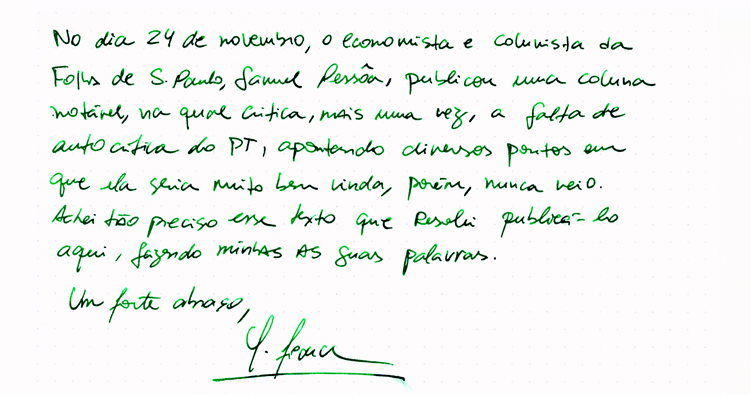 No dia 24 de novembro, o economista e colunista da
Folha de S. Paulo, Samuel Pessôa, publicou uma coluna
notável, na qual critica, mais uma vez, a falta de
autocrítica do PT, apontando diversos pontos em
que ela seria muito bem vinda, porém, nunca veio.
Achei tão preciso esse texto que resolvi publicá-lo
aqui, fazendo minhas as suas palavras.
Um forte abraço,